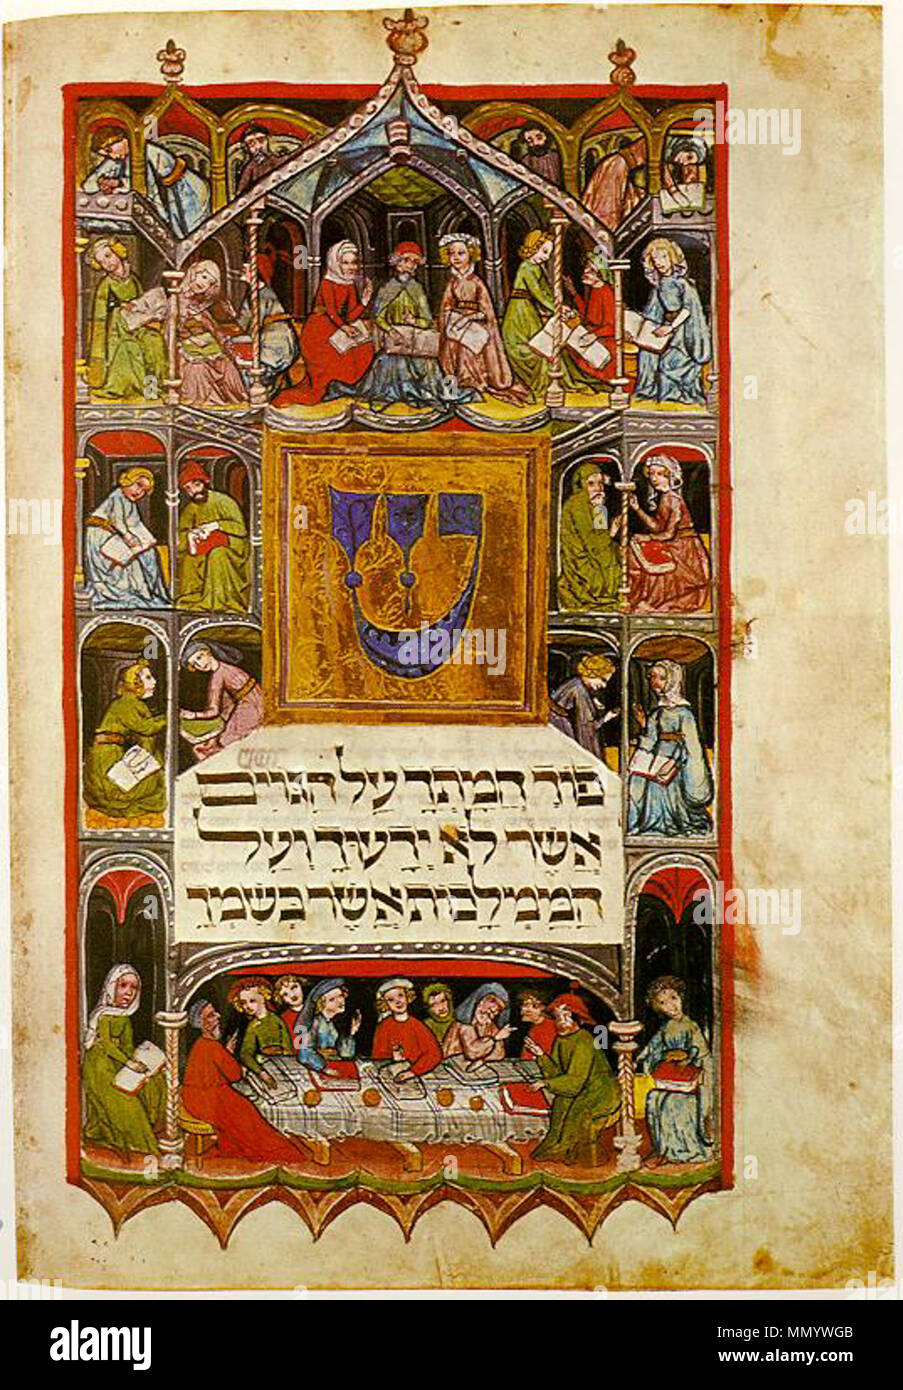 ש
פוך חמתך על הגוים
אשר לא ידעוך ועל
הממלכות אשר בשמך
alamy
Image ID: MMYWGB
www.alamy.com